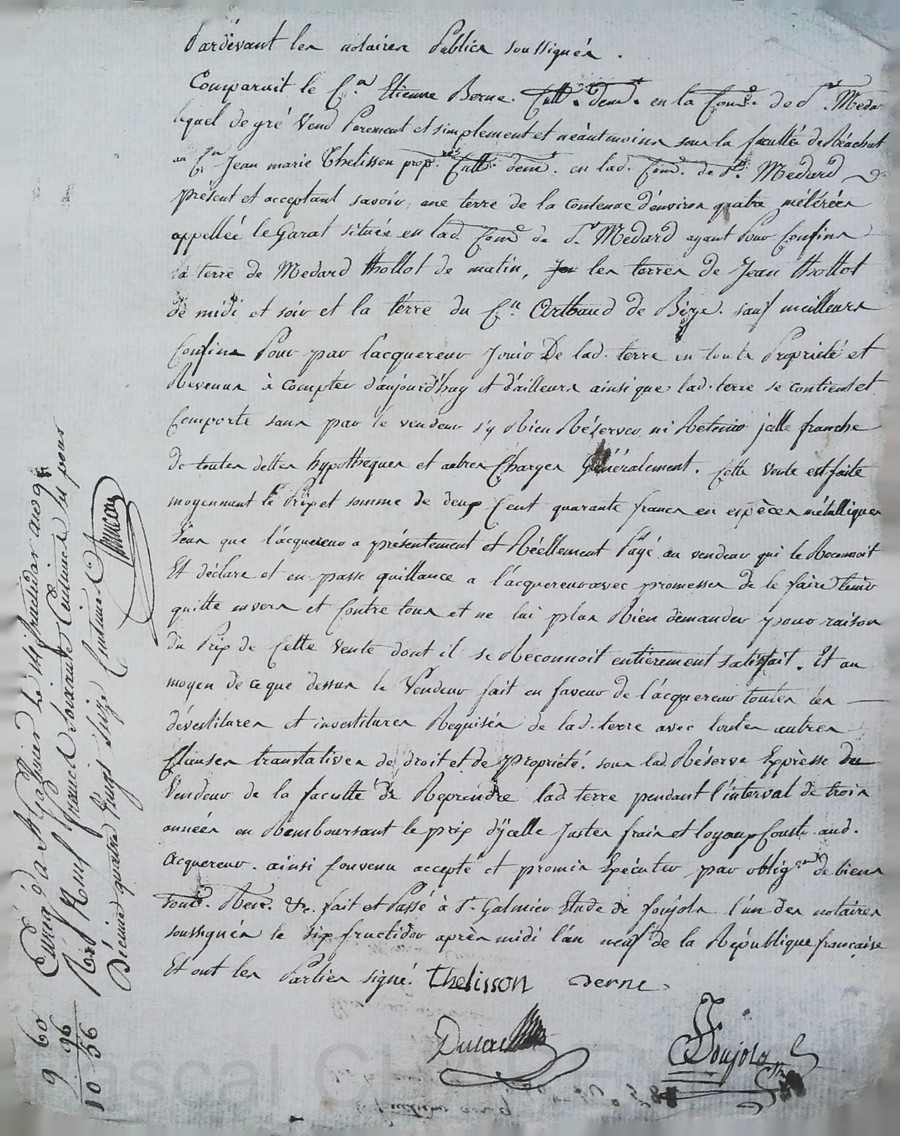 Pardevant les notaires Publics soussignés.
Comparait le C.en Etienne Berne Cult.r dem.t en la Com.e de S.t Medard
lequel de gré Vend Purement et simplement et néantmoins sous la faculté de Réachat
au C.en Jean marie Thelisson prop.re Cult.r dem.t en lad. Com.e de S.t Medard
présent et acceptant savoir, une terre de la contenue d'environ quatre métérées
appellée le Garat située en lad. Com.e de S.t Medard ayant Pour Confins
la terre de Medard Thollot de matin, les terres de Jean Thollot
de midi et soir et la terre du C.en de Bize. sauf meilleurs
Confins Pour par l'acquereur Jouir De lad. terre en toute Propriété et
Revenus à Compter d'aujourd'huy et d'ailleurs ainsi que lad. terre se contient et
Comporte sans par le vendeur s'y Rien Réserver ni Retenir jcelle franche
de toutes dettes hypotheques et autres Charges Généralement. Cette Vente est faite
moyennant le Prix et somme de deux Cent quarante francs en espèces métalliques
que l'acquereur a présentement et Réellement Payé au vendeur qui le Reconnoit
Et déclare et en passe quittance a l'acquereur avec promesses de le faire tenir
quitte envers et Contre tous et ne lui plus Rien demander pour raison
du Prix de Cette Vente dont il se Reconnoit entièrement satisfait. Et au
moyen de ce que dessus le Vendeur fait en faveur de l'acquereur toutes les
dévestitures et investitures Requises de lad. terre avec toutes autres
Clauses translatives de droit et de propriété. sous lad. Réserve Expresse du
Vendeur de la faculté de Reprendre lad. terre pendant l'interval de trois
années en Remboursant le prix d'jcelle Justes frais et loyaux Couts aud.
Acquereur. ainsi Convenu accepté et promis Exécuter par oblig.on de biens
Soum. Ren. &c. fait et Passé à S.t Galmier Etude de Joujols l'un des notaires
soussignés le six fructidor après midi l'an neuf de la République française
Et ont les Parties signé. Thelisson Berne
Joujols
Enreg. à S.t Galmier le fructidor an 9
Reçu Neuf francs soixante Centimes et pour
Décime quatre vingt seize Centimes
9 60
96
10 56